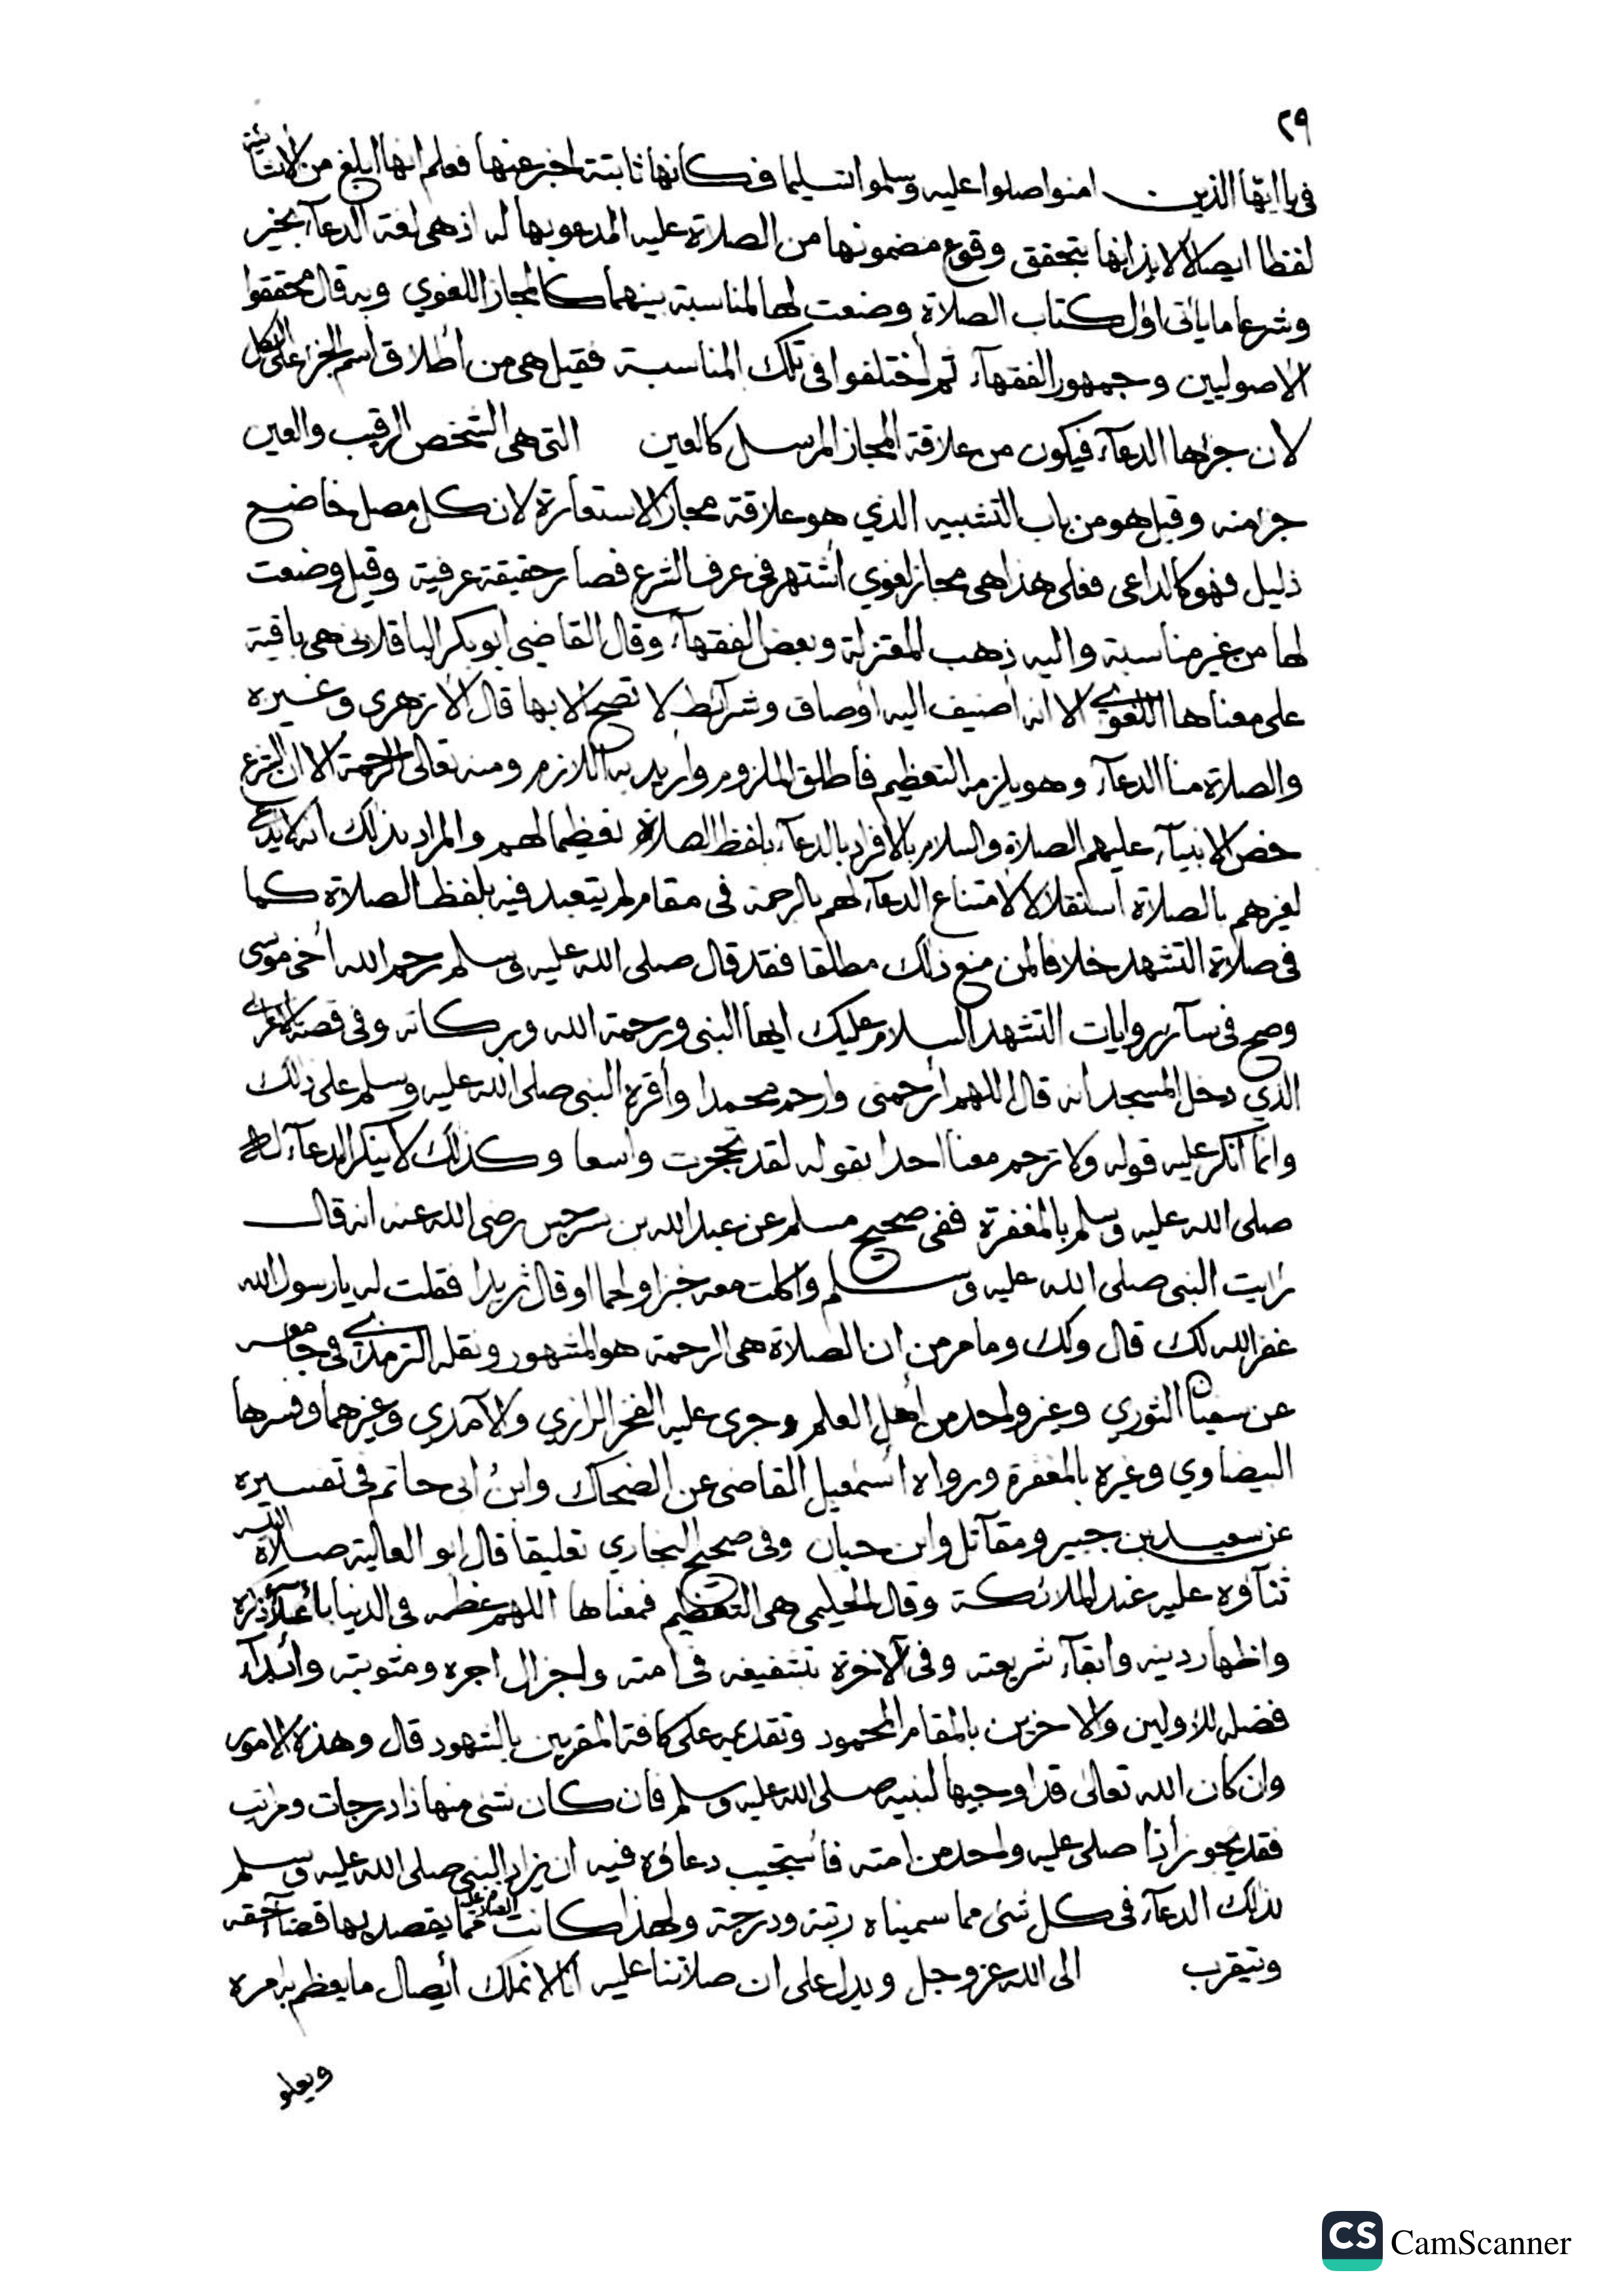 ٢٩
في يا ايها الذين امنوا صلوا عليه وسلموا تسليما فكأنها ثابتة اخبر عنها فعلم انها ابلغ من الانشائية
لفظا ايصالا لايذانها بتحقق وقوع مضمونها من الصلاة عليه المدعو بها له اذ هي لغة الدعآء بخير
وشرعا ما يأتى اول كتاب الصلاة وضعت لها لمناسبة بينهما كالمجاز اللغوي وبه قال محققوا
الاصوليين وجمهور الفقهآء ثم أختلفوا فى تلك المناسبة فقيل هى من أطلاق أسم الجزء على الكل
لان جزءها الدعآء فيكون من علاقة المجاز المرسل كالعين التى هى الشخص الرقيب والعين
جزء منه وقيل هو من باب التشبيه الذي هو علاقة مجاز الاستعارة لان كل مصل خاضع
ذليل فهو كالداعى فعلى هذا هى مجاز لغوي اشتهر فى عرف الشرع فصار حقيقة عرفية وقيل وضعت
لها من غير مناسبة واليه ذهب المعتزلة وبعض الفقهآء وقال القاضي أبو بكر الباقلانى هى باقية
على معناها اللغوي الا انه أضيف اليه أوصاف وشرآئط لا تصح الا بها قال الأزهرى وغيره
والصلاة منا الدعآء وهو يلزمه التعظيم فأطلق الملزوم وأريد به اللازم ومنه تعالى الرحمة الا ان الشرع
خص الانبيآء عليهم الصلاة والسلام بالافراد بالدعآء بلفظ الصلاة تعظيما لهم والمراد بذلك انه لا يدعى
لغيرهم بالصلاة أستقلالا لا امتناع الدعآء لهم بالرحمة فى مقام لم يتعبد فيه بلفظ الصلاة كما
فى صلاة التشهد خلافا لمن منع ذلك مطلقا فقد قال صلى الله عليه وسلم رحم الله أخى موسى
وصح فى سآئر روايات التشهد السلام عليك ايها النبى ورحمة الله وبركاته وفى قصة الاعرابى
الذي دخل المسجد انه قال اللهم أرحمنى وارحم محمدا وأقره النبى صلى الله عليه وسلم على ذلك
وانما أنكر عليه قوله ولا ترحم معنا احدا بقوله لقد تحجرت واسعا وكذلك لا ينكر الدعآء له
صلى الله عليه وسلم بالمغفرة ففى صحيح مسلم عن عبد الله بن سرجس رضى الله عنه انه قال
رايت النبى صلى الله عليه وسلم واكلت معه خبزا ولحما او قال ثريدا فقلت له يا رسول الله
غفر الله لك قال ولك وما مر من ان الصلاة هى الرحمة هو المشهور ونقله الترمذي فى جامعه
عن سفيان الثوري وغير واحد من أهل العلم وجرى عليه الفخر الرازي والآمدي وغيرهما وفسرها
البيضاوي وغيره بالمغفرة ورواه أسمعيل القاضى عن الضحاك وابن ابى حاتم فى تفسيره
عن سعيد بن جبير ومقآتل وابن حبان وفى صحيح البخاري تعليقا قال ابو العالية صلاة الله
ثنآؤه عليه عند الملائكة وقال الحليمى هى التعظيم فمعناها اللهم عظمه فى الدنيا باعلآء ذكره
واظهار دينه وابقآء شريعته وفى الآخرة تشفيعه فى امته واجزال اجره ومثوبته وأبدآء
فضله للأولين والاخرين بالمقام المحمود وتقديمه على كافة المقربين بالشهود قال وهذه الامور
وان كان الله تعالى قد اوجبها لنبيه صلى الله عليه وسلم فان كان شئ منها ذا درجات ومراتب
فقد يجوز أذا صلى عليه واحد من امته فأستجيب دعاؤه فيه ان يزاد النبى صلى الله عليه وسلم
بذلك الدعآء فى كل شئ مما سميناه رتبة ودرجة ولهذا كانت الصلاة عليه مما يقصد بها قضآء حقه
ويتقرب الى الله عز وجل ويدل على ان صلاتنا عليه أنا لا نملك أيصال ما يعظم به امره
ويعلو
CS CamScanner